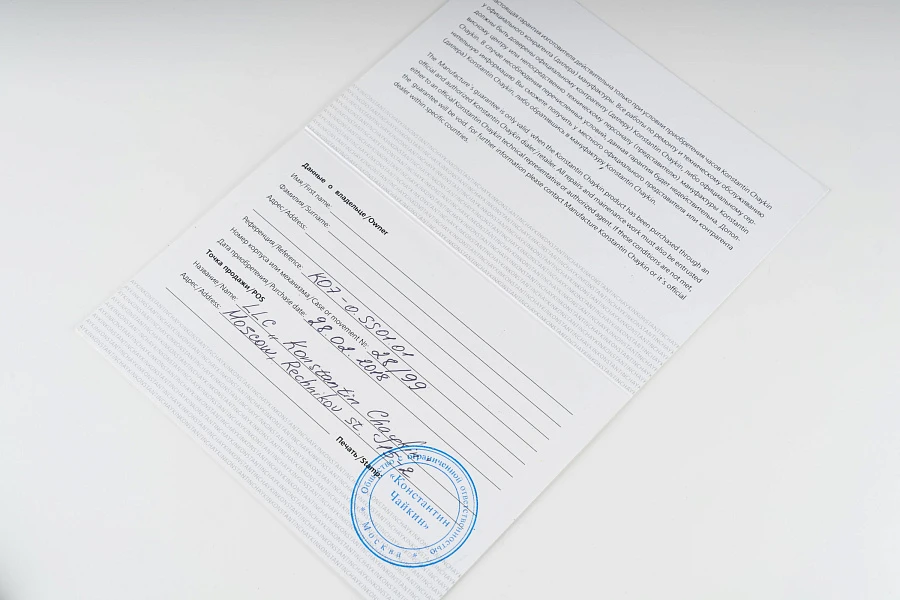 настоящая гарантия изготовителя действительна только при условии приобретения часов Konstantin Chaykin
у официального контрагента (дилера) мануфактуры. Все работы по ремонту и техническому обслуживанию
должны быть доверены официальному контрагенту (дилеру) Konstantin Chaykin, либо официальному сер-
висному центру или непосредственно техническому персоналу (представителю) мануфактуры Konstantin
Chaykin. В случае несоблюдения перечисленных условий, данная гарантия будет недействительна. Допол-
нительную информацию Вы сможете получить у местного официального представителя или контрагента
(дилера) Konstantin Chaykin, либо обратившись в мануфактуру Konstantin Chaykin.
The Manufacture's guarantee is only valid when the Konstantin Chaykin product has been purchased through an
official and authorized Konstantin Chaykin dealer/retailer. All repairs and maintenance work must also be entrusted
either to an official Konstantin Chaykin technical representative or authorized agent. If these conditions are not met,
the guarantee will be void. For further information please contact Manufacture Konstantin Chaykin or it's official
dealer within specific countries.
Данные о владельце/Owner
Имя/First name:
Фамилия/Surname:
Адрес/Address:
Референция/Reference: K07-0 SS01 01
Номер корпуса или механизма/Case or movement №: 28/99
Дата приобретения/Purchase date: 28 02 2018
Точка продажи/POS
Название/Name: LLC „Konstantin
Адрес/Address: Moscow, Rechnikov st.
Печать/Stamp:
Общество с ограниченной ответственностью
«Константин
Чайкин»
* Москва *